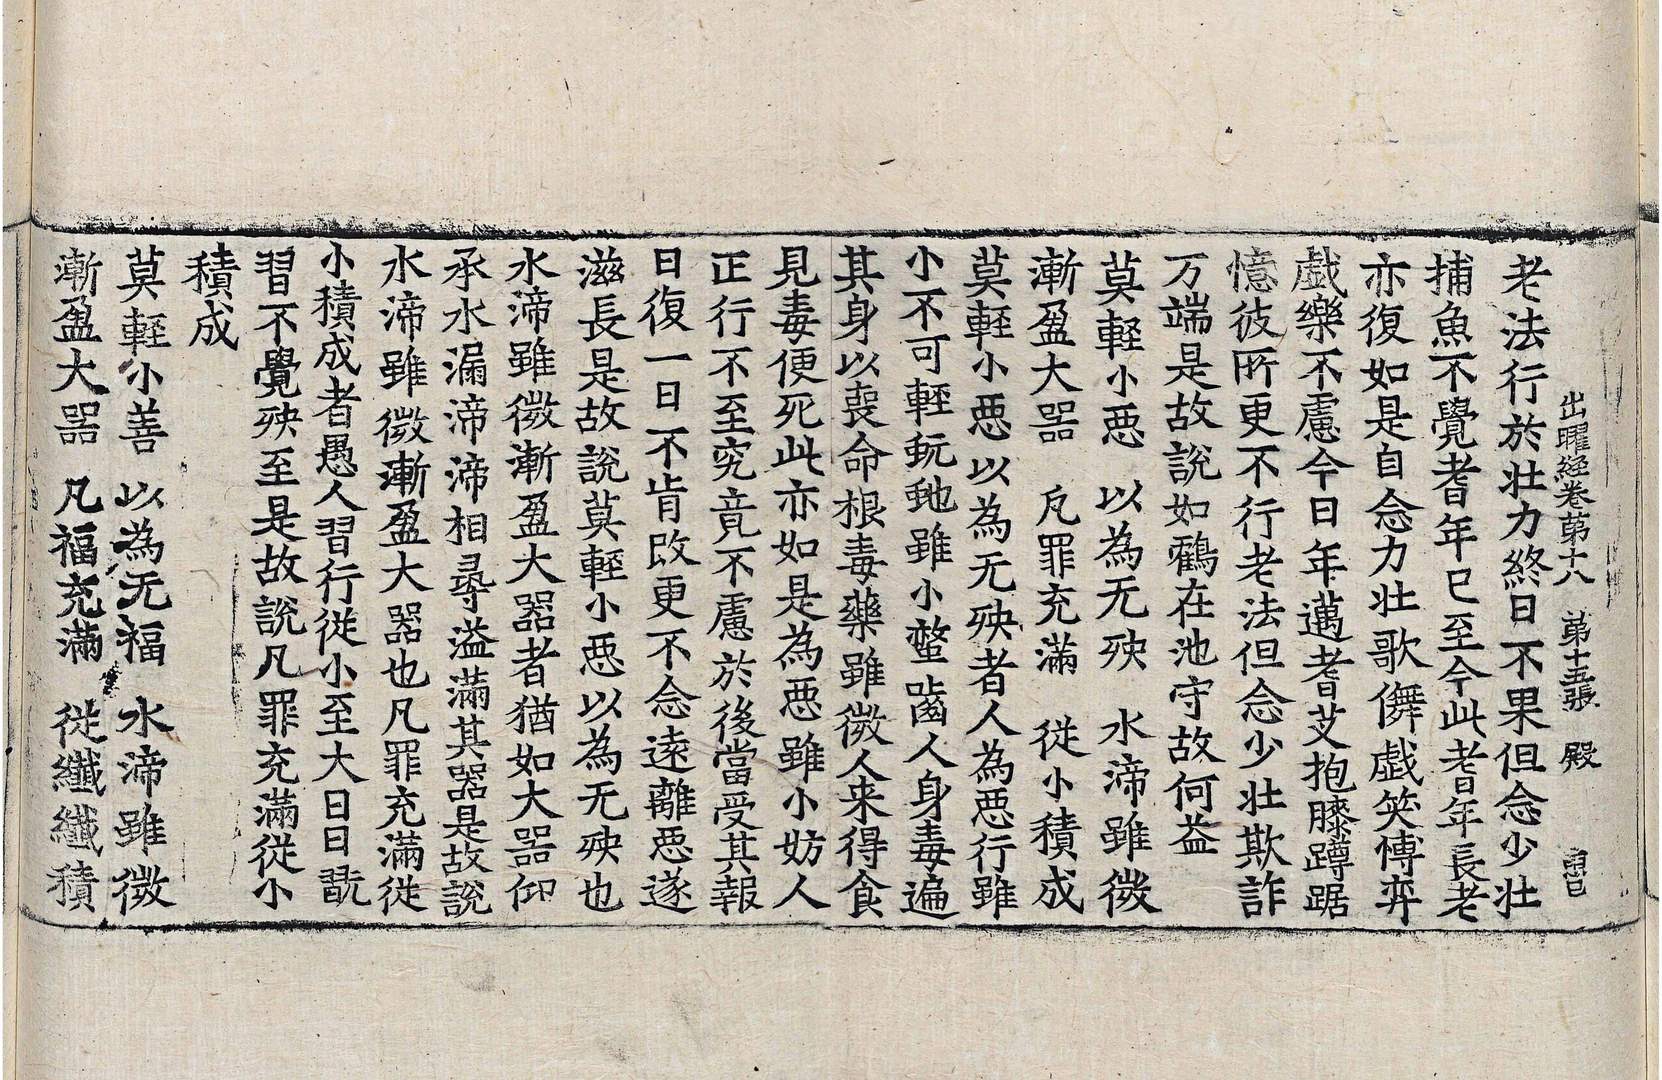 出曜経卷苐十八 苐十五張 殿
老法行於壮力終日不果但念少壮
捕魚不覺耆年已至今此耆年長老
亦復如是自念力壮歌儛戯笑博弈
戯樂不慮今日年邁耆艾抱膝蹲踞
憶彼所更不行老法但念少壮欺詐
万端是故說如鸛在池守故何益
莫輕小惡 以為无殃 水渧雖微
漸盈大器 凢罪充滿 從小積成
莫輕小惡以為无殃者人為惡行雖
小不可輕玩虵雖小螫齧人身毒遍
其身以喪命根毒藥雖微人来得食
見毒便死此亦如是為惡雖小妨人
正行不至究竟不慮於後當受其報
日復一日不肯改更不念遠離惡遂
滋長是故說莫輕小惡以為无殃也
水渧雖微漸盈大器者猶如大器仰
承水漏渧渧相尋溢滿其器是故說
水渧雖微漸盈大器也凡罪充滿從
小積成者愚人習行從小至大日日翫
習不覺殃至是故說凡罪充滿從小
積成
莫輕小善 以為无福 水渧雖微
漸盈大器 凡福充滿 從纖纖積